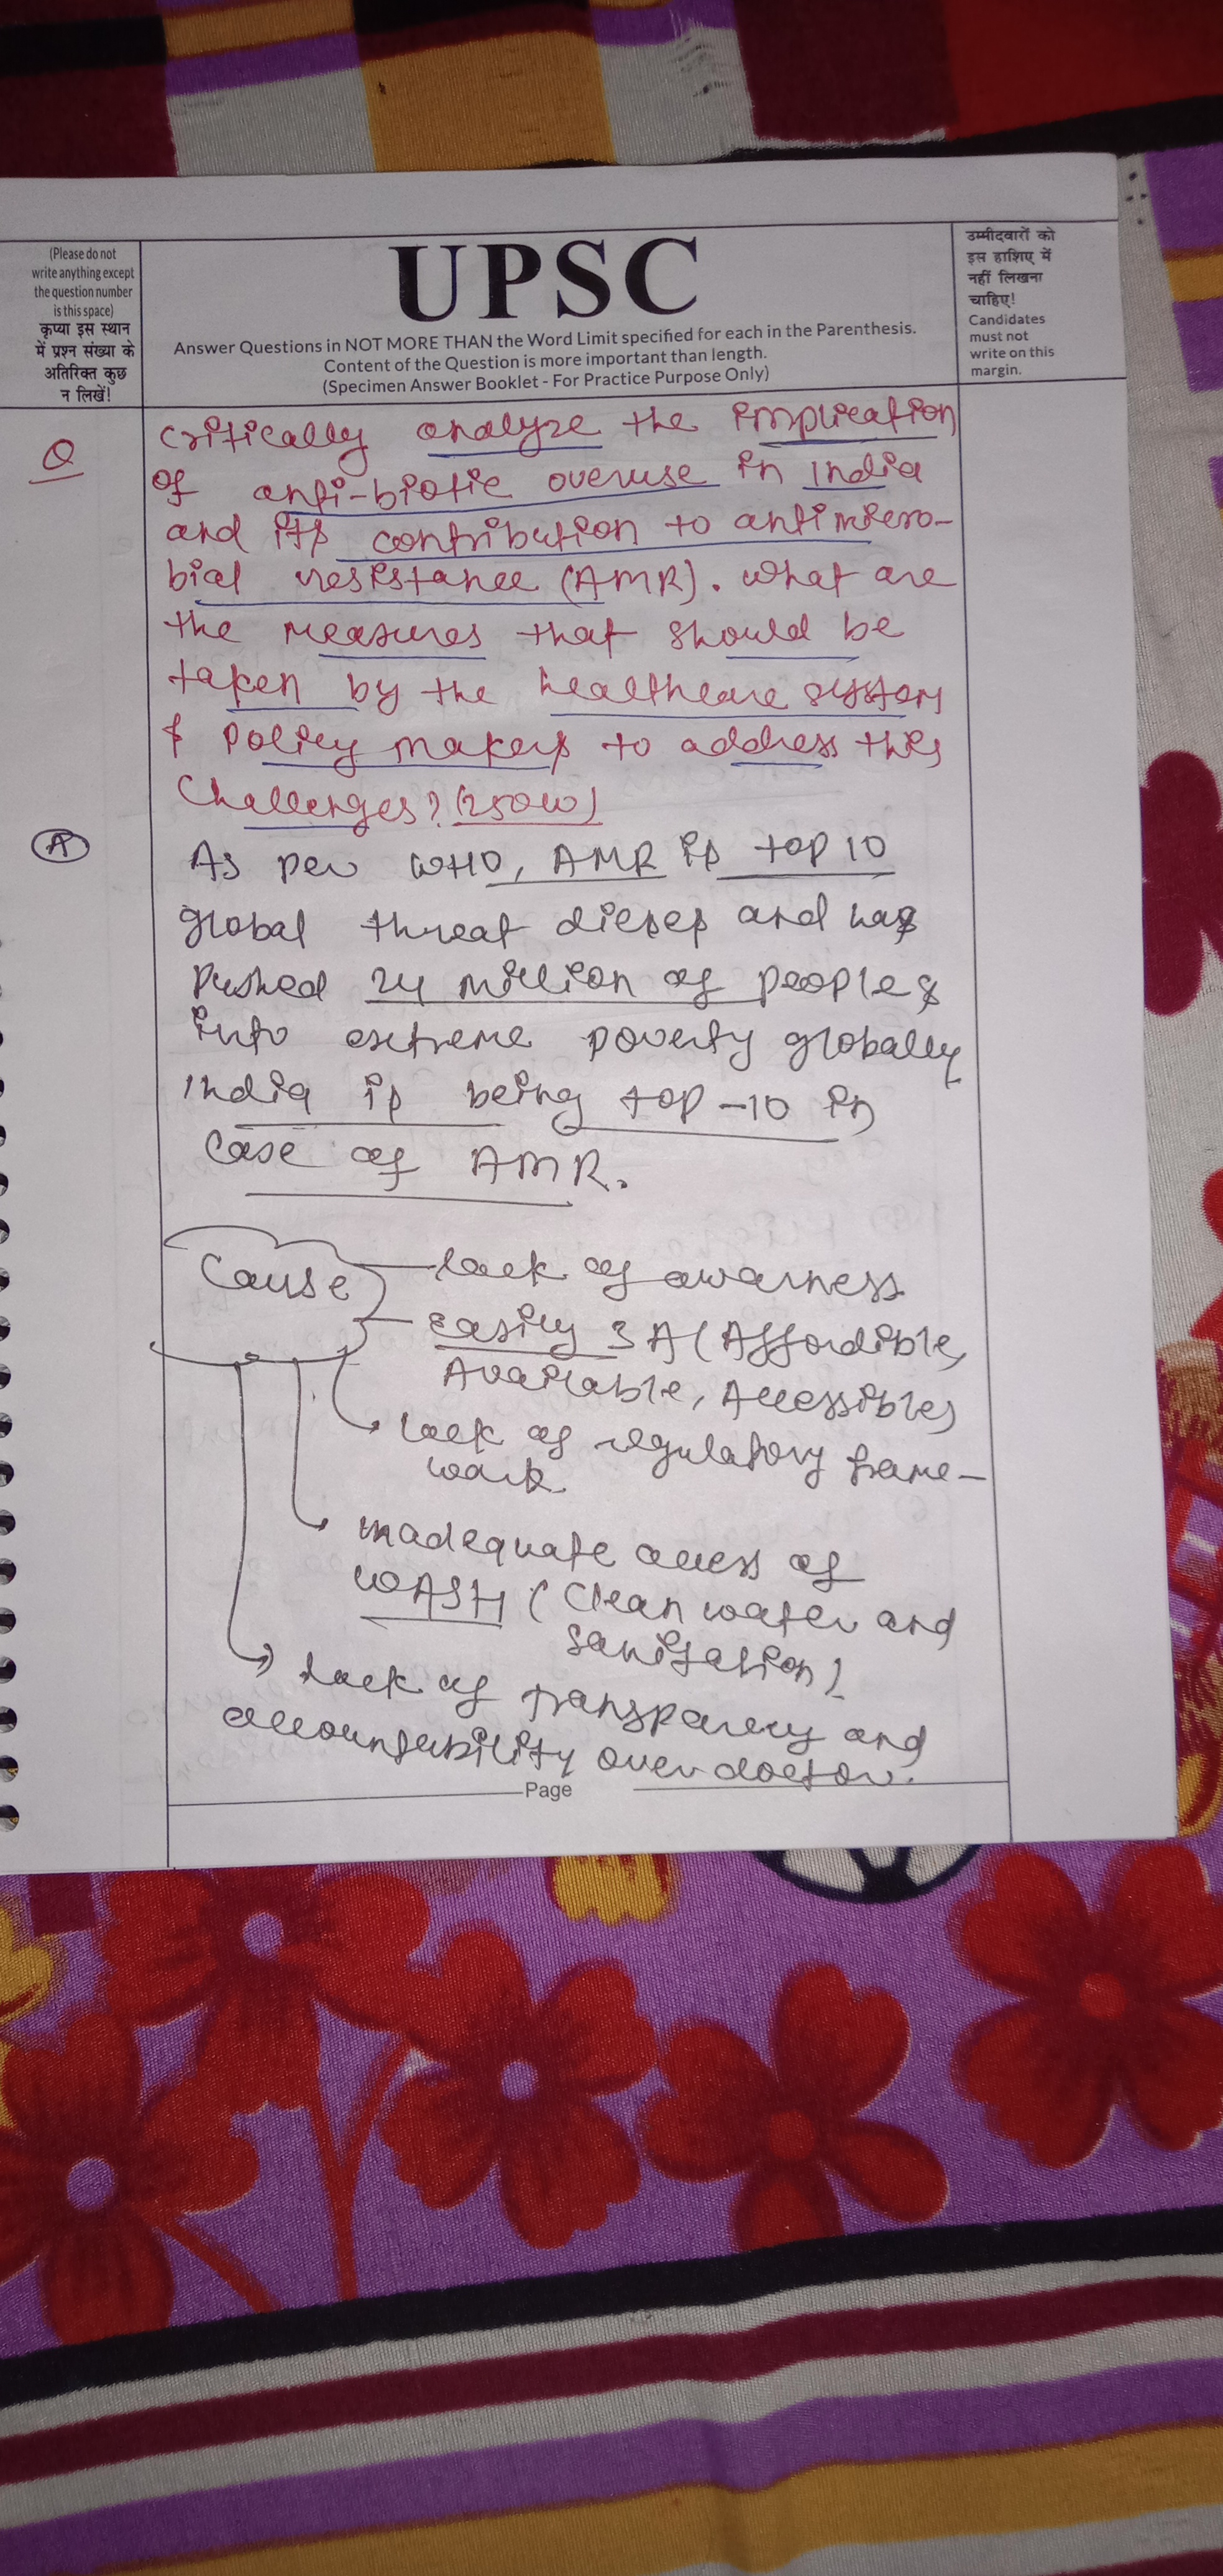 (Please do not
write anything except
the question number
is this space)
कृप्या इस स्थान
में प्रश्न संख्या के
अतिरिक्त कुछ
न लिखें!
UPSC
Answer Questions in NOT MORE THAN the Word Limit specified for each in the Parenthesis.
Content of the Question is more important than length.
(Specimen Answer Booklet - For Practice Purpose Only)
उम्मीदवारों को
इस हाशिए में
नहीं लिखना
चाहिए!
Candidates
must not
write on this
margin.
Q
Critically analyze the implication
of anti-biotic overuse in India
and its contribution to antimicro-
bial resistance (AMR). What are
the measures that should be
taken by the healthcare system
& policy makers to address this
challenges? (250W)
A
As per WHO, AMR is top 10
global threat dieses and has
pushed 24 million of peoples
into extreme poverty globally
India is being top-10 in
case of AMR.
Cause
lack of awarness
easily 3A (Affordible,
Available, Accessible)
lack of regulatory frame-
work
inadequate access of
WASH (Clean water and
sanitation)
lack of transparency and
accountability over doctor.
Page